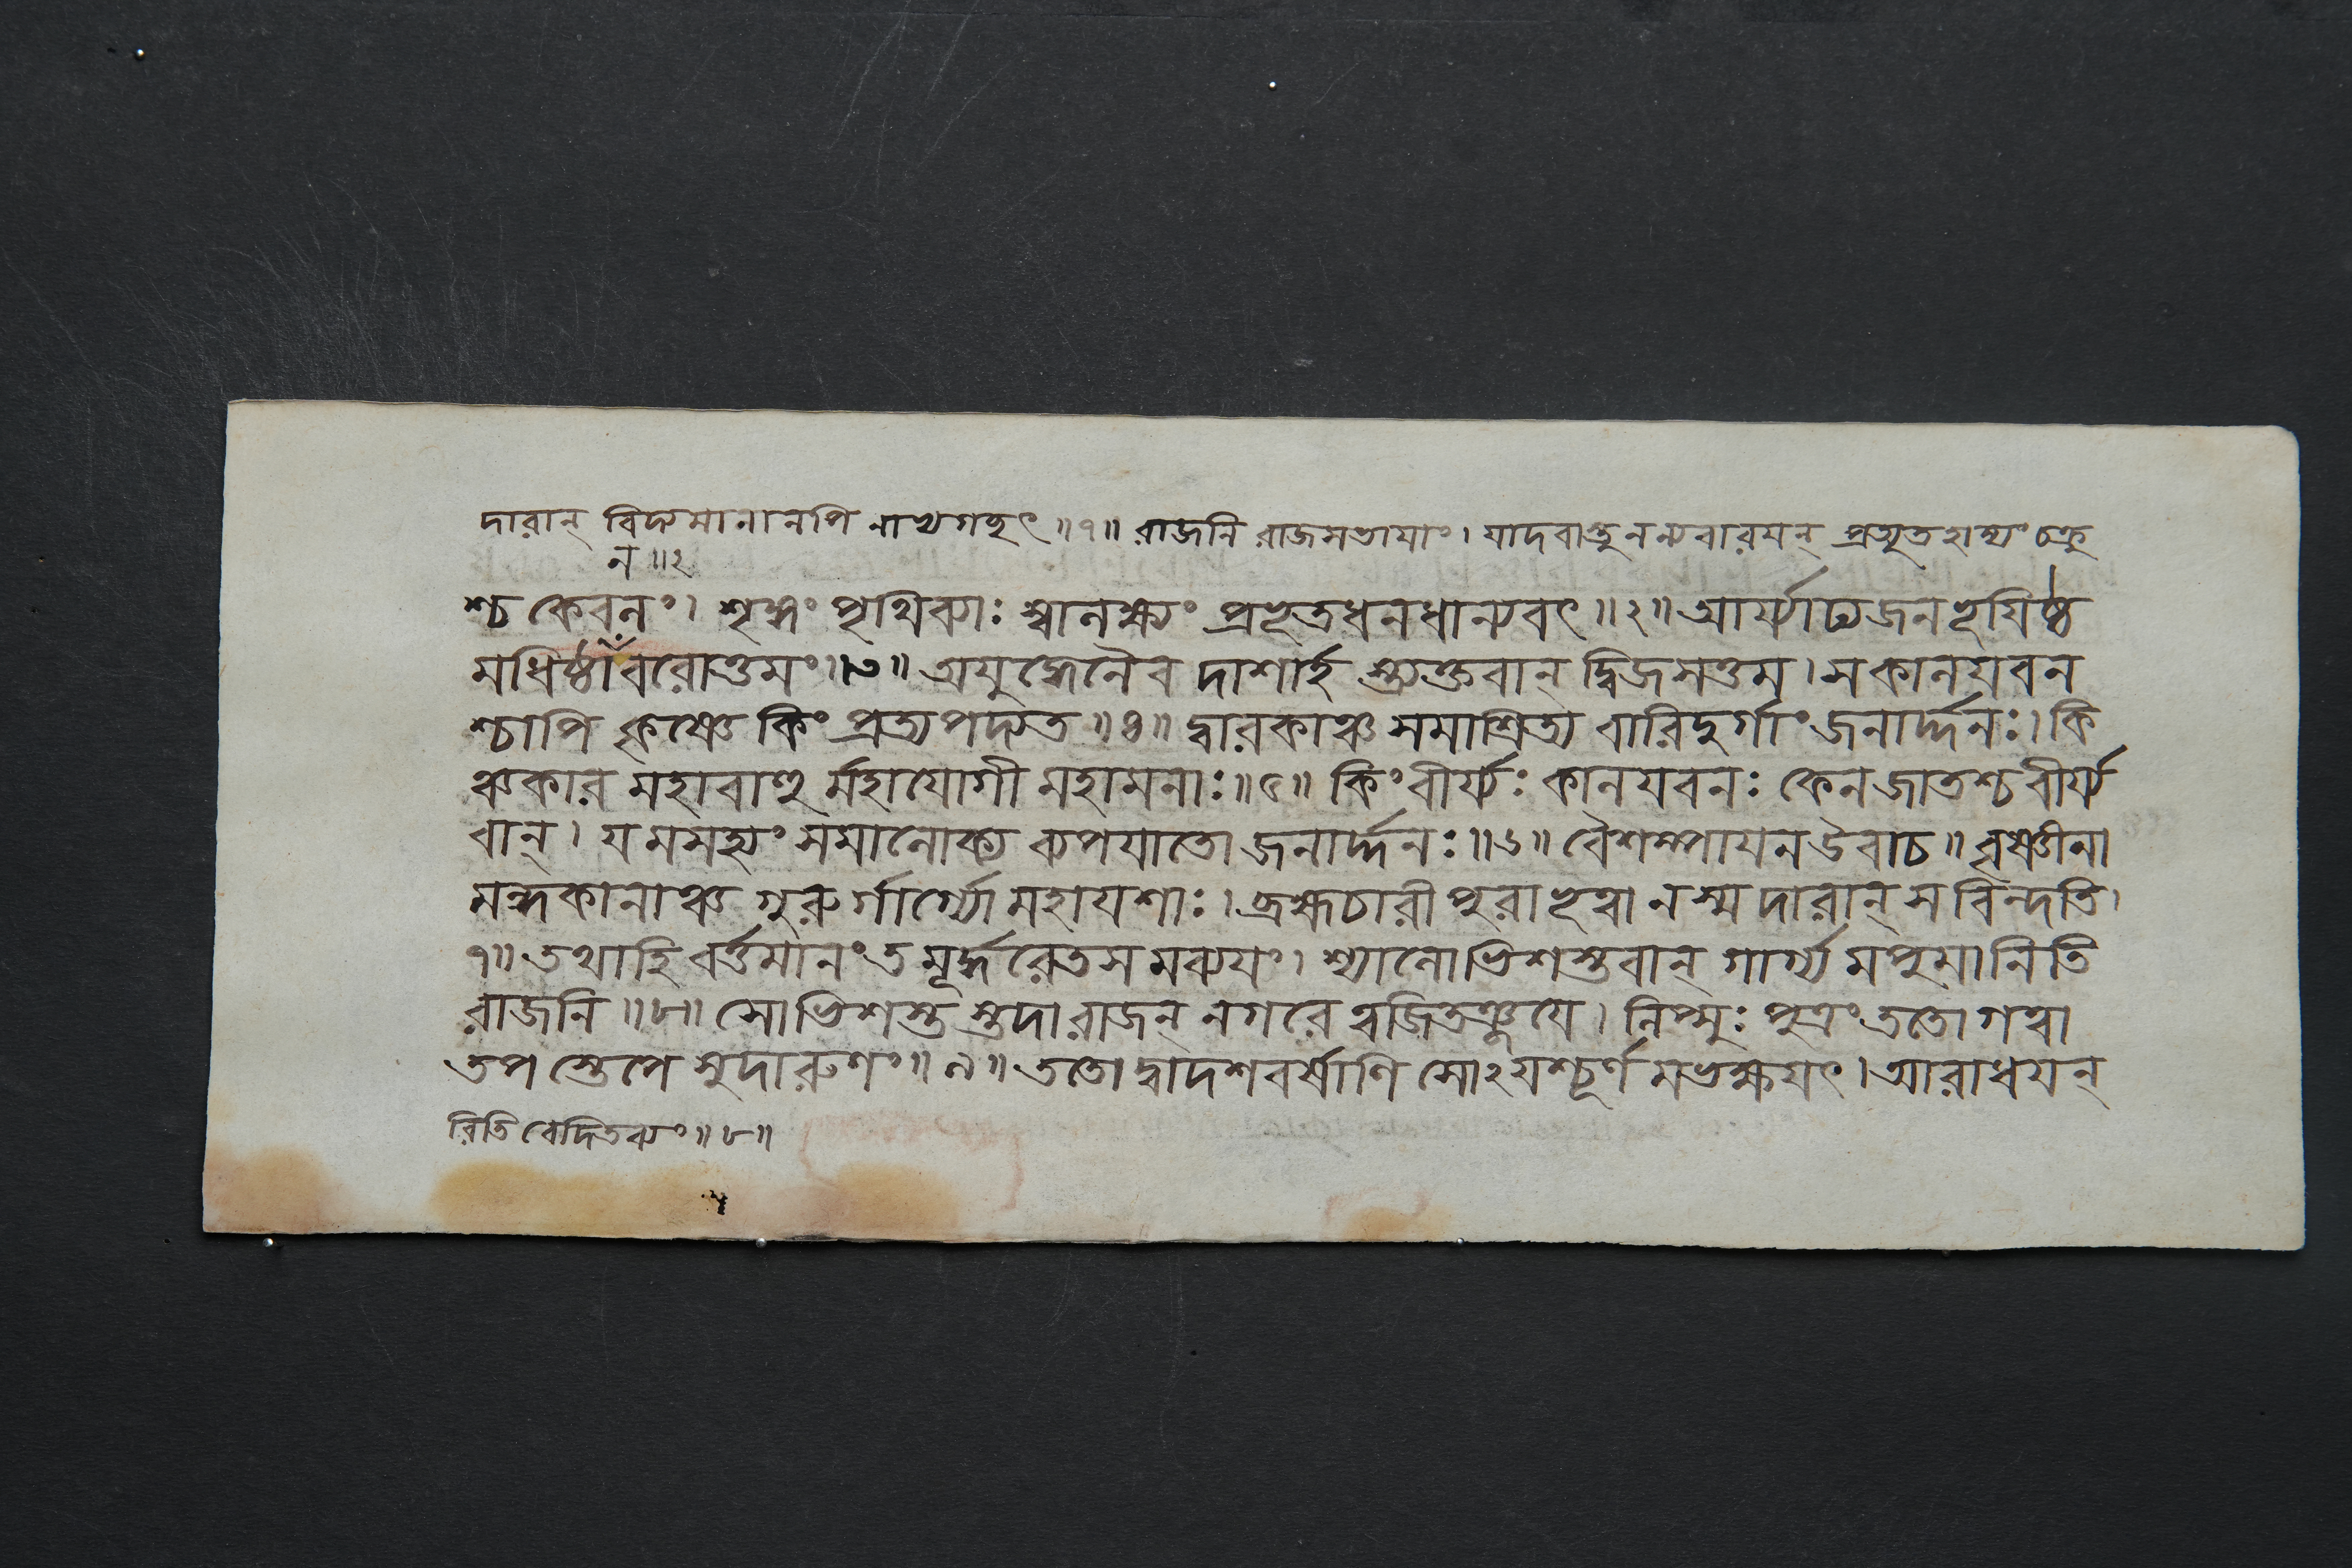 দারান্ বিদ্যমানানপি নাত্যগচ্ছৎ॥৭॥ রাজনি রাজসভায়াং। যাদবাস্তু নন্যবারয়ন্ প্রত্যুতহাস্যং চক্রু
ন॥২
শ্চ কেবলং। শৃঙ্গং পৃথিব্যাঃ স্বালক্ষ্যং প্রভূতধনধান্যবৎ॥২॥ আর্য্যাঢ্যজনভূয়িষ্ঠ
মধিষ্ঠানবরোত্তমং॥৩॥ অযুদ্ধেনৈব দাশার্হ স্ত্যক্তবান্ দ্বিজসত্তম। সকালযবন
শ্চাপি কৃষ্ণে কিং প্রত্যপদ্যত॥৪॥ দ্বারকাঞ্চ সমাশ্রিত্য বারিদুর্গাং জনার্দ্দনঃ। কি
ঞ্চকার মহাবাহু র্মহাযোগী মহামনাঃ॥৫॥ কিংবীর্য্যঃ কালযবনঃ কেনজাতশ্চবীর্য্য
বান্। যমসহ্যং সমালোক্য ব্যপযাতো জনার্দ্দনঃ॥৬॥ বৈশম্পায়নউবাচ॥ বৃষ্ণীনা
মন্ধকানাঞ্চ গুরু র্গার্গ্যো মহাযশাঃ। ব্রহ্মচারী পুরা ভূত্বা নস্ম দারান্ স বিন্দতি।
৭॥ তথাহি বর্ত্তমানং ত মূর্দ্ধরেতস মব্যয়ং। শ্যালোভিশস্তবান্ গার্গ্য মপুমানিতি
রাজনি॥৮॥ সোভিশস্ত স্তদারাজন্ নগরে ত্বজিতঞ্জয়ে। লিপ্সুঃ পুত্রং ততো গত্বা
তপ স্তেপে সুদারুণং॥৯॥ ততো দ্বাদশবর্ষাণি সোঽয়শ্চূর্ণ মভক্ষয়ৎ। আরাধয়ন্
রিতি বেদিতব্যং॥৮॥